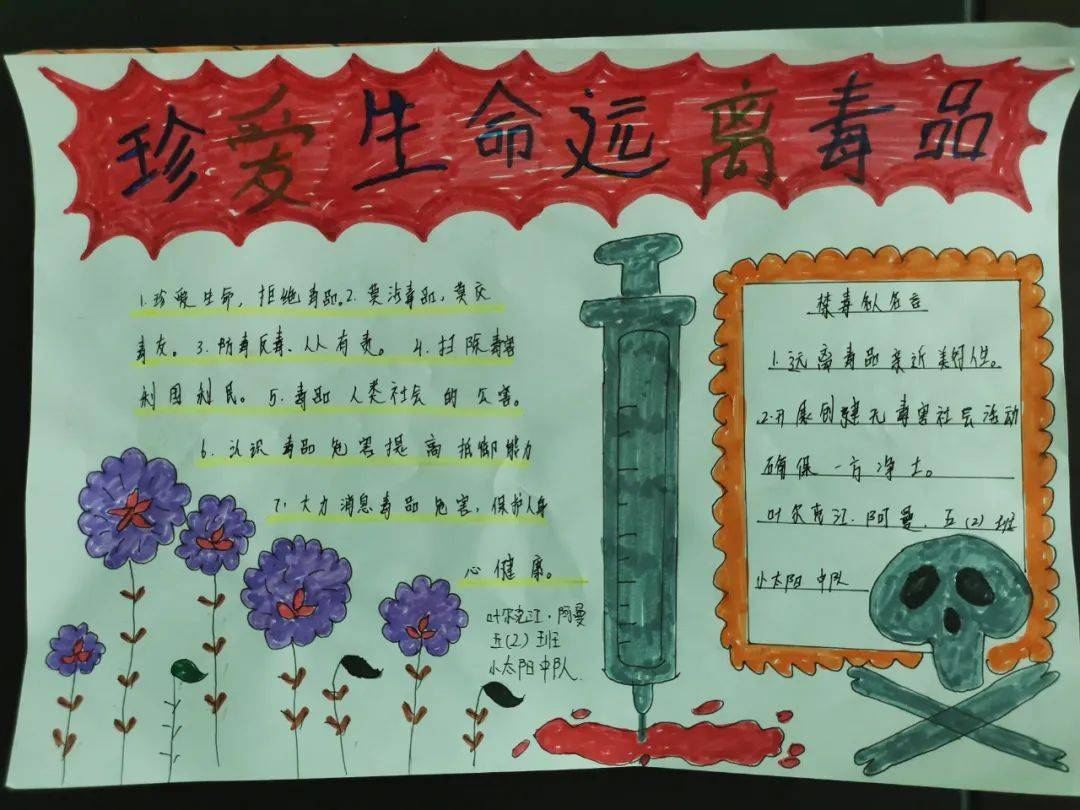 珍爱生命远离毒品
1.珍爱生命，拒绝毒品。2.莫沾毒品，莫交
毒友。3.防毒反毒、人人有责。4.扫除毒害
利国利民。5.毒品人类社会的公害。
6.认识毒品危害提高抵御能力
7.大力消息毒品危害，保护人身
心健康。
叶尔克江·阿曼
五(2)班
小太阳中队
禁毒队名言
1.远离毒品亲近美好人性。
2.开展创建无毒害社会活动
确保一方净土。
叶尔克江.阿曼.五(2)班
小太阳中队